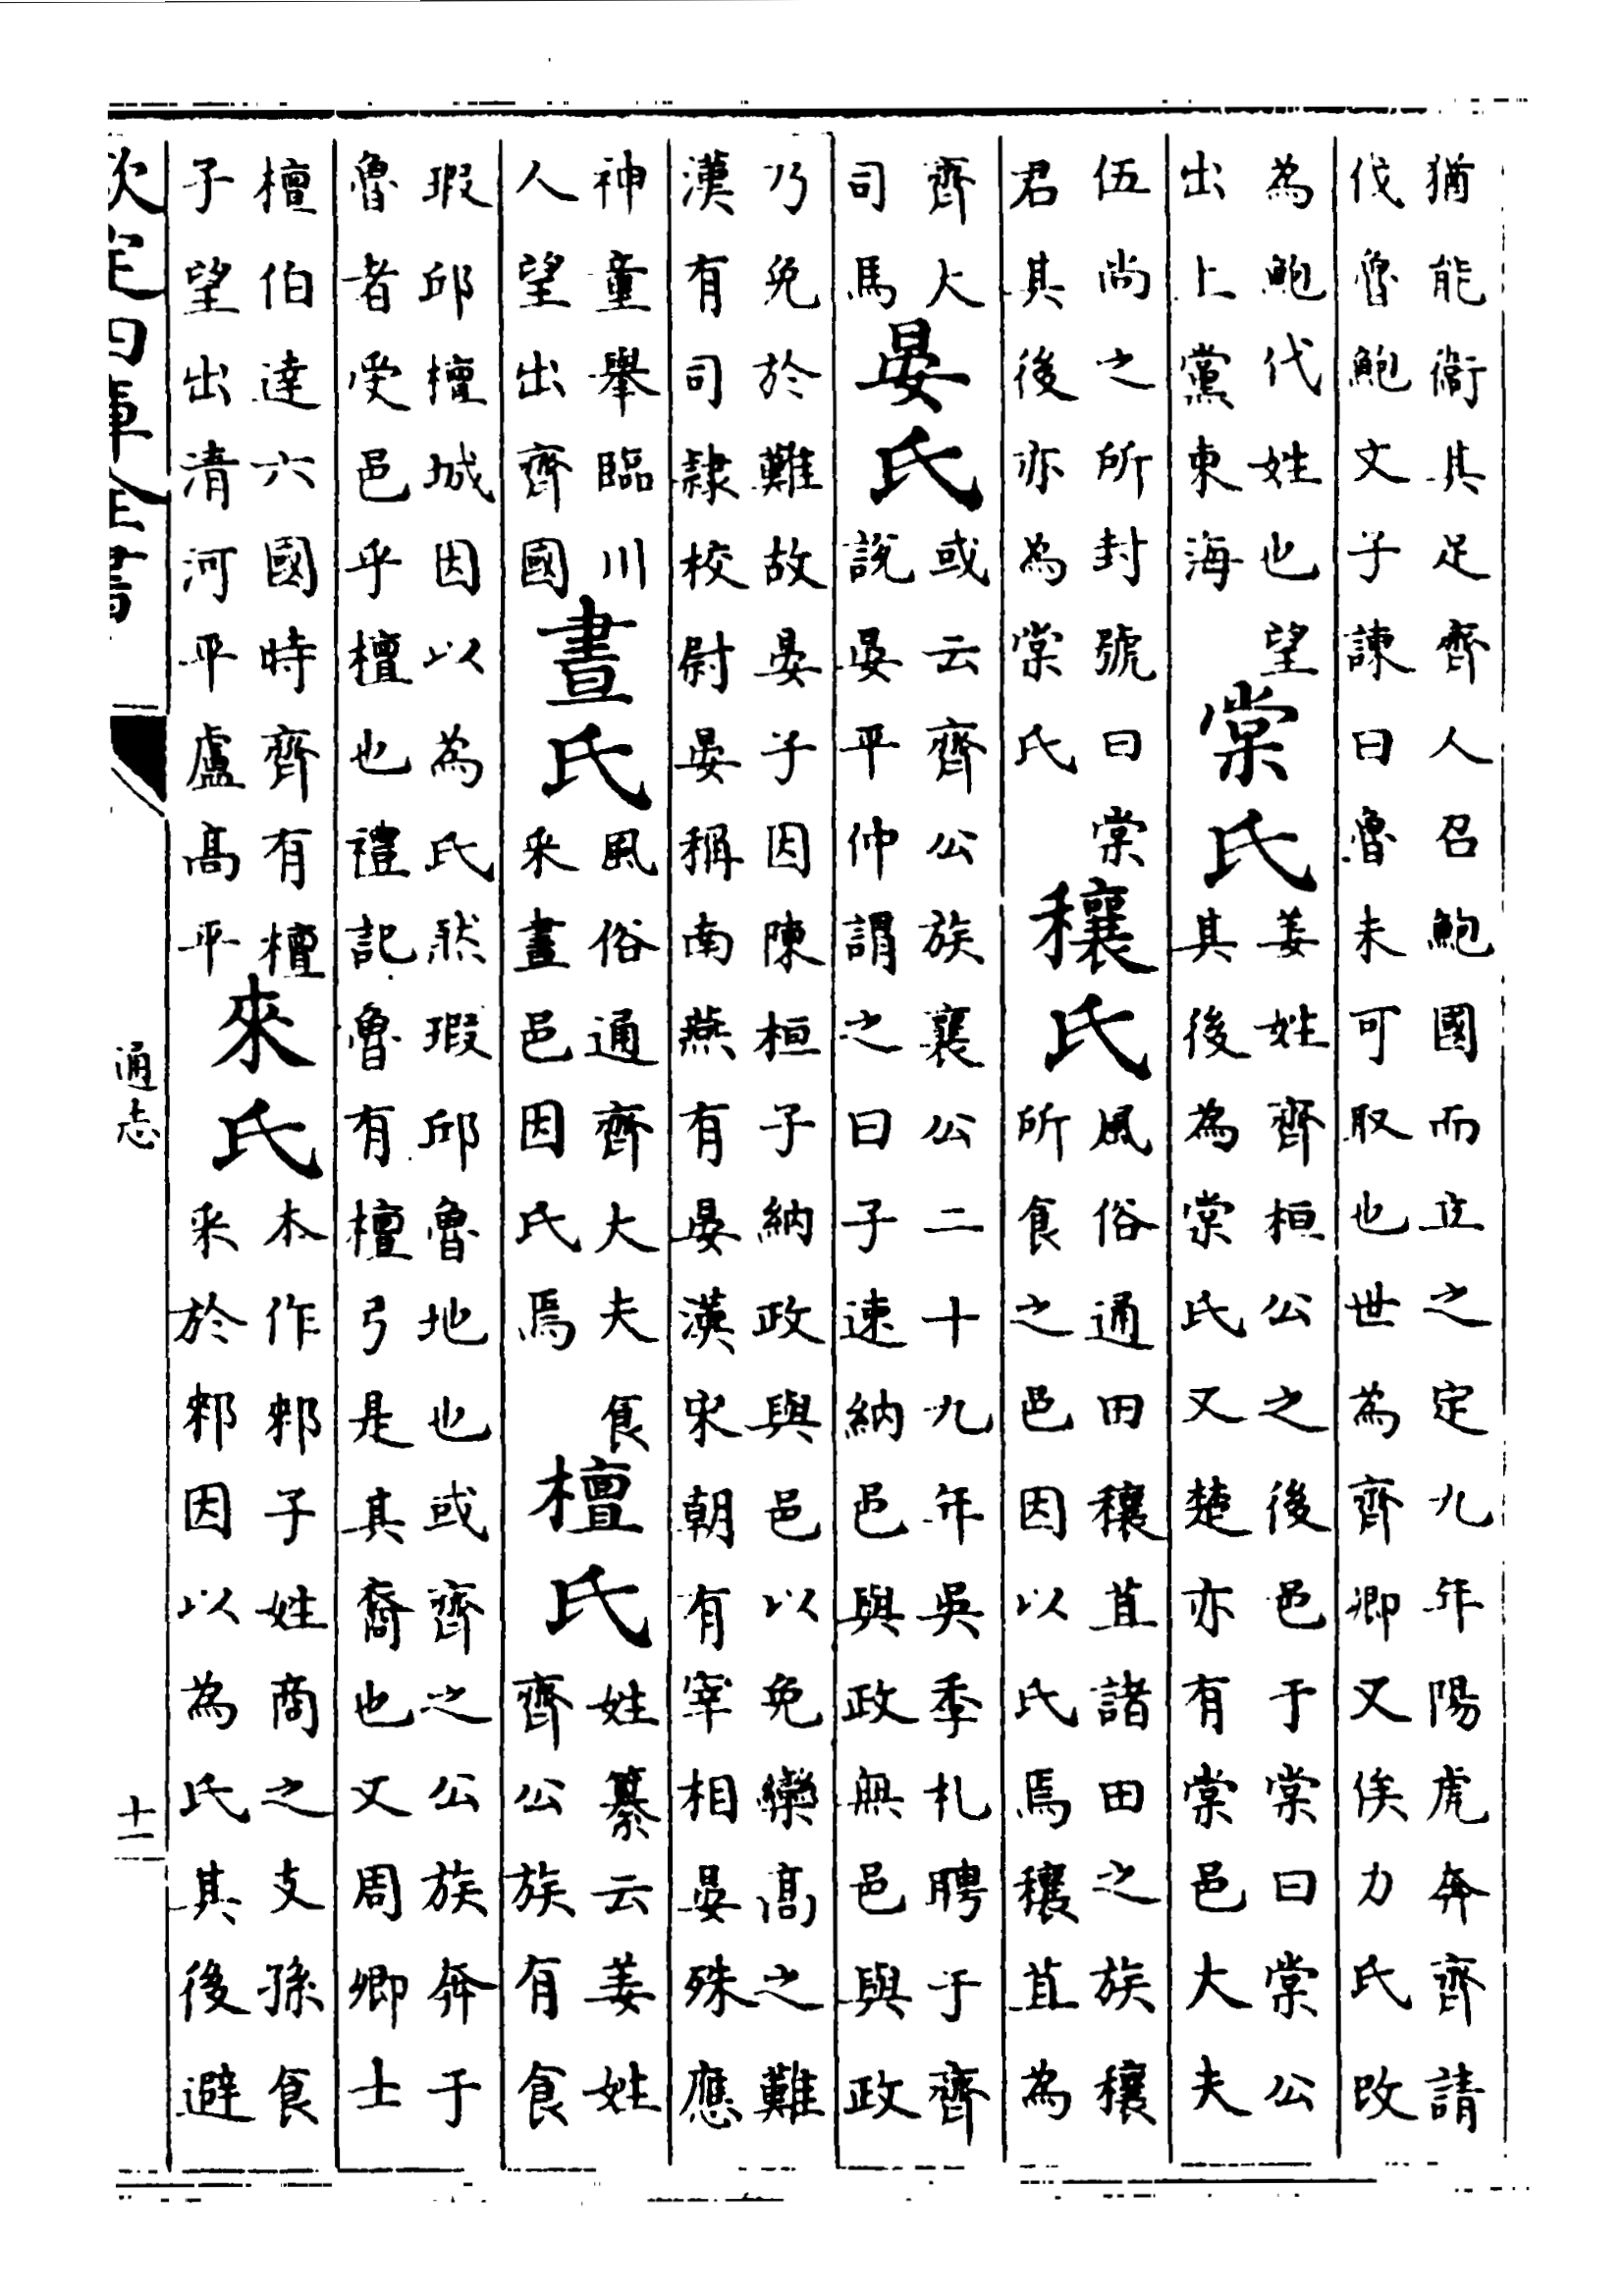 猶能衞其足齊人召鮑國而立之定九年陽虎奔齊請
伐魯鮑文子諫曰魯未可取也世為齊卿又俟力氏改
為鮑代姓也望
出上黨東海
棠氏
姜姓齊桓公之後邑于棠曰棠公
其後為棠氏又楚亦有棠邑大夫
伍尚之所封號曰棠
君其後亦為棠氏
穰氏
風俗通田穰苴諸田之族穰
所食之邑因以氏焉穰苴為
齊大
司馬
晏氏
或云齊公族襄公二十九年吳季札聘于齊
說晏平仲謂之曰子速納邑與政無邑與政
乃免於難故晏子因陳桓子納政與邑以免欒高之難
漢有司隸校尉晏稱南燕有晏漢宋朝有宰相晏殊應
神童舉臨川
人望出齊國
晝氏
風俗通齊大夫食
采晝邑因氏焉
檀氏
姓纂云姜姓
齊公族有食
瑕邱檀城因以為氏然瑕邱魯地也或齊之公族奔于
魯者受邑乎檀也禮記魯有檀弓是其裔也又周卿士
檀伯達六國時齊有檀
子望出清河平盧高平
來氏
本作郲子姓商之支孫食
采於郲因以為氏其後避
欽定四庫全書
通志
十一